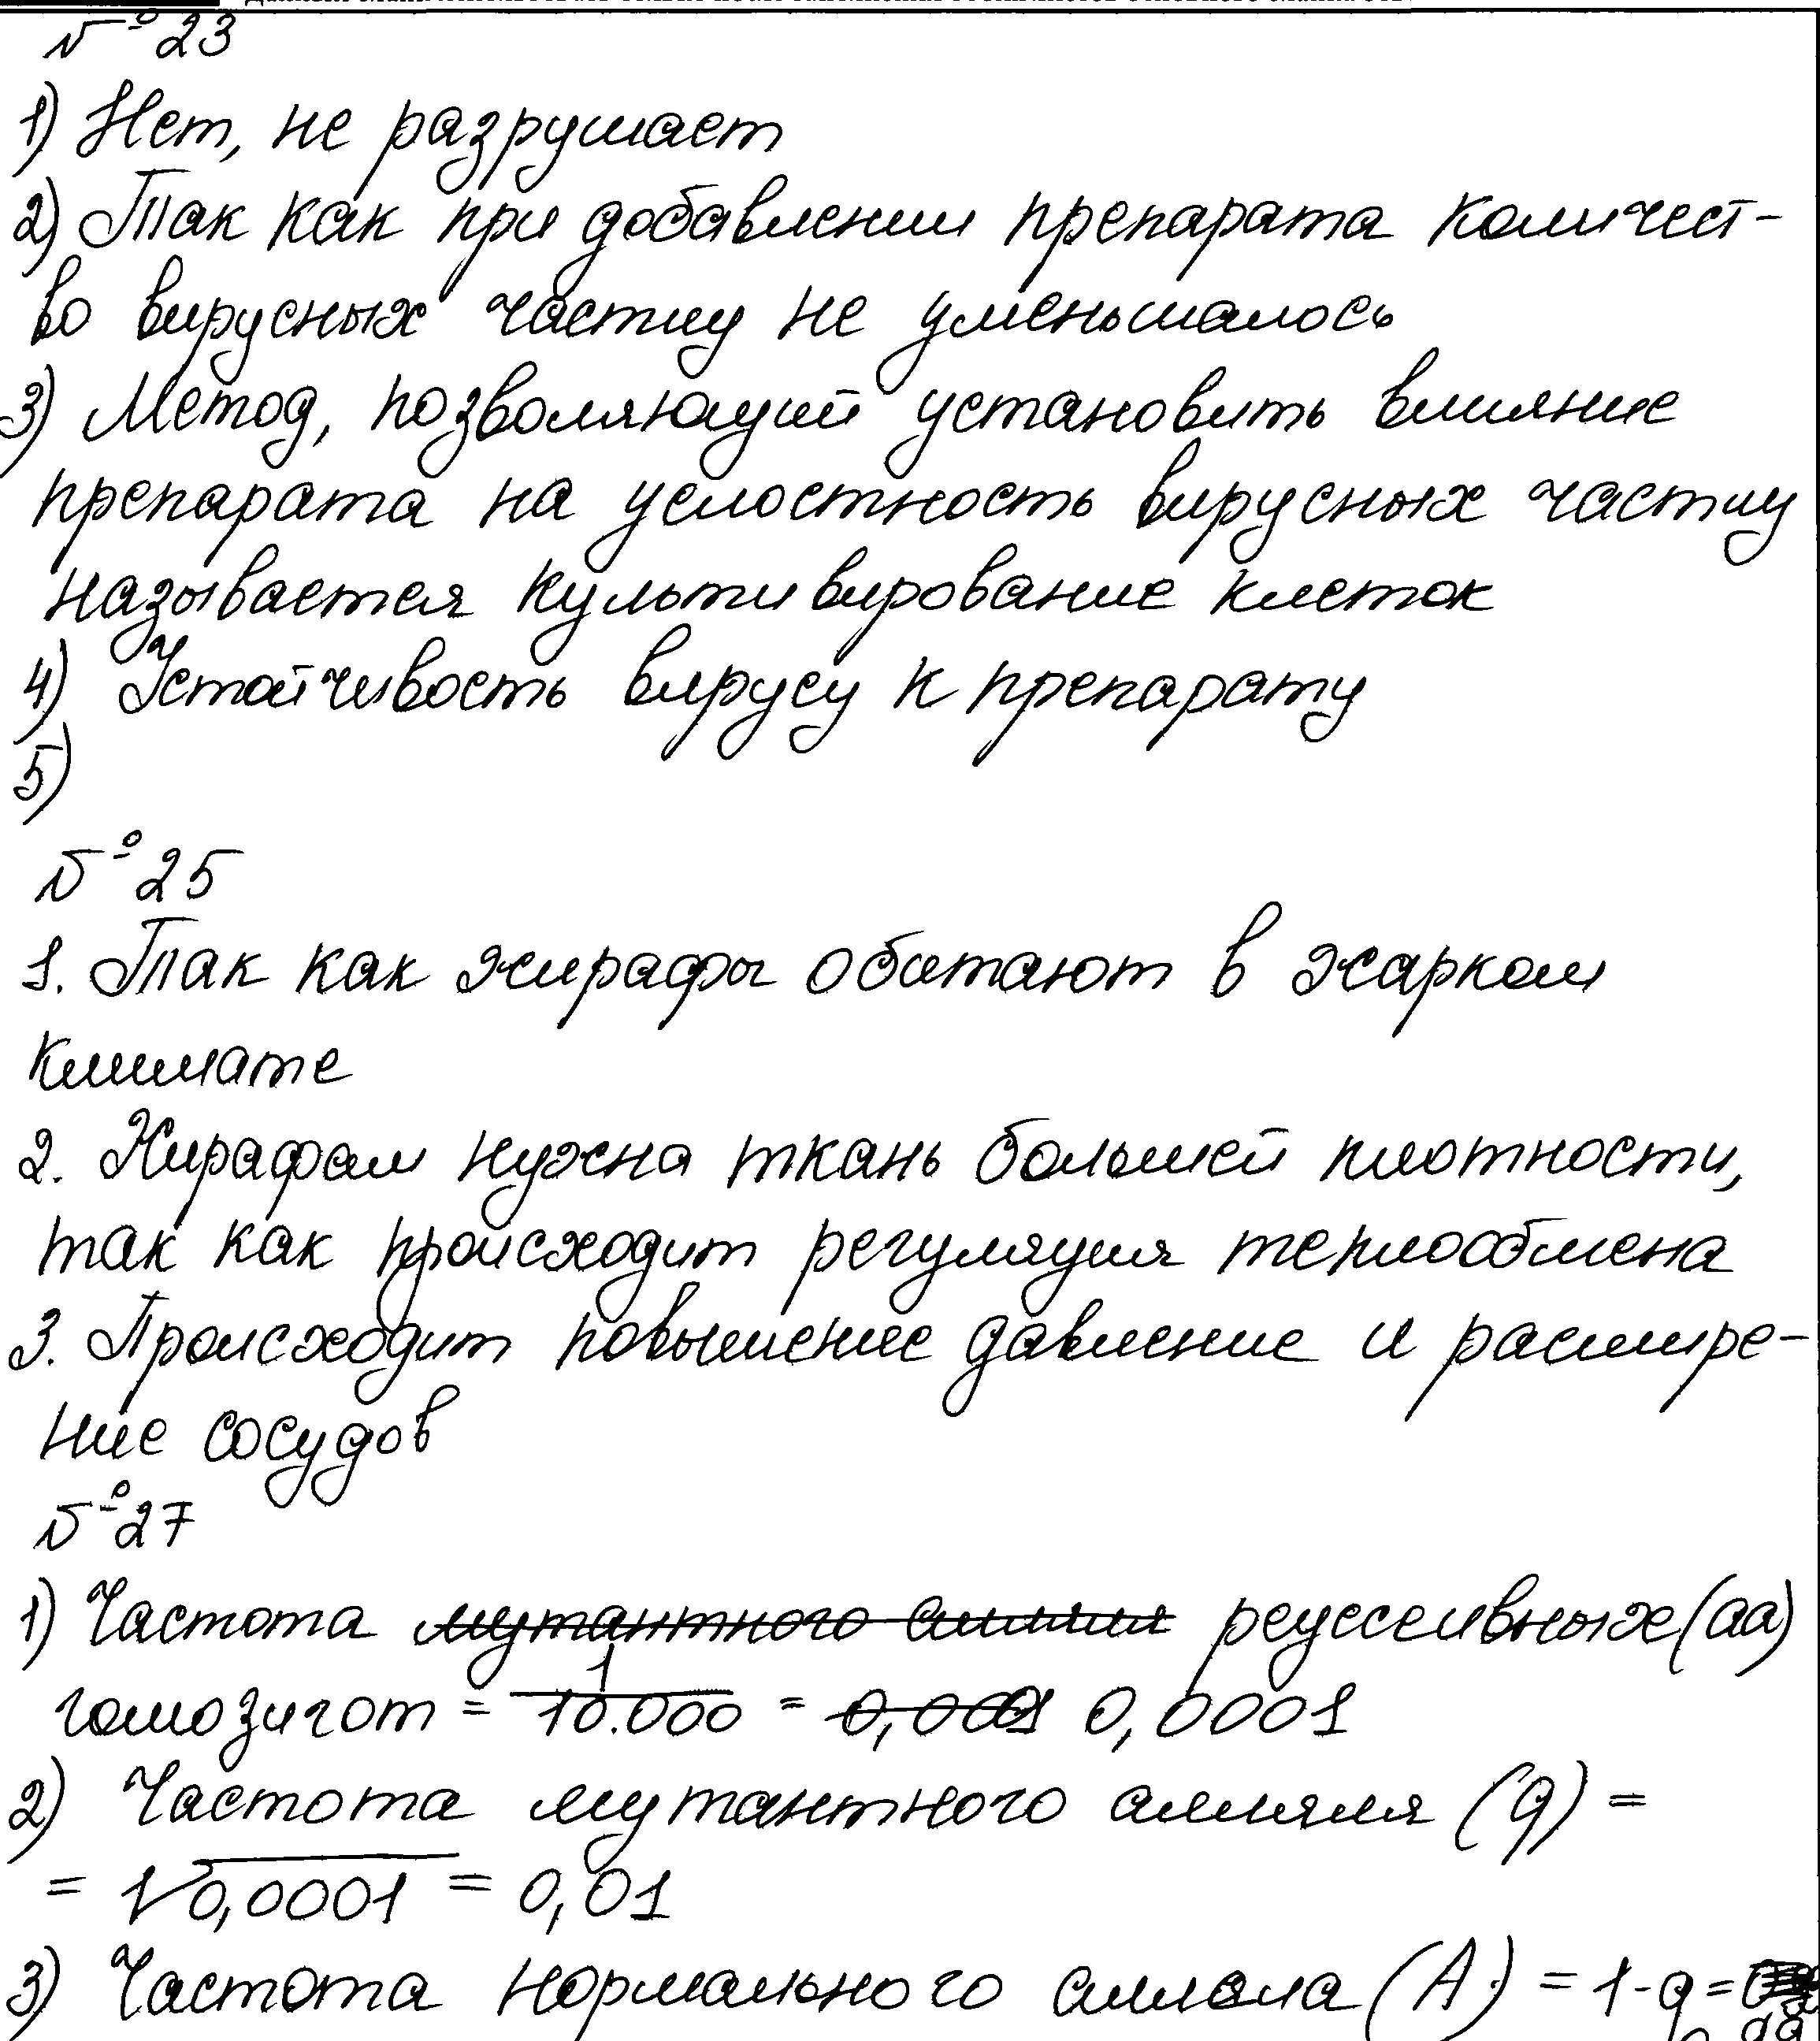 № 23
1) Нет, не разрушает
2) Так как при добавлении препарата количест-
во вирусных частиц не уменьшалось
3) Метод, позволяющий установить влияние
препарата на целостность вирусных частиц
называется культивирование клеток
4) Устойчивость вирусу к препарату
5)
№ 25
1. Так как жирафы обитают в жарком
климате
2. Жирафам нужна ткань большей плотности,
так как происходит регуляция теплообмена
3. Происходит повышение давление и расшире-
ние сосудов
№ 27
1) Частота мутантного аллеля рецессивных (аа)
гомозигот = 1/10.000 = 0,001 0,0001
2) Частота мутантного алляля (q) =
= √0,0001 = 0,01
3) Частота нормального аллеля (А) = 1-q =